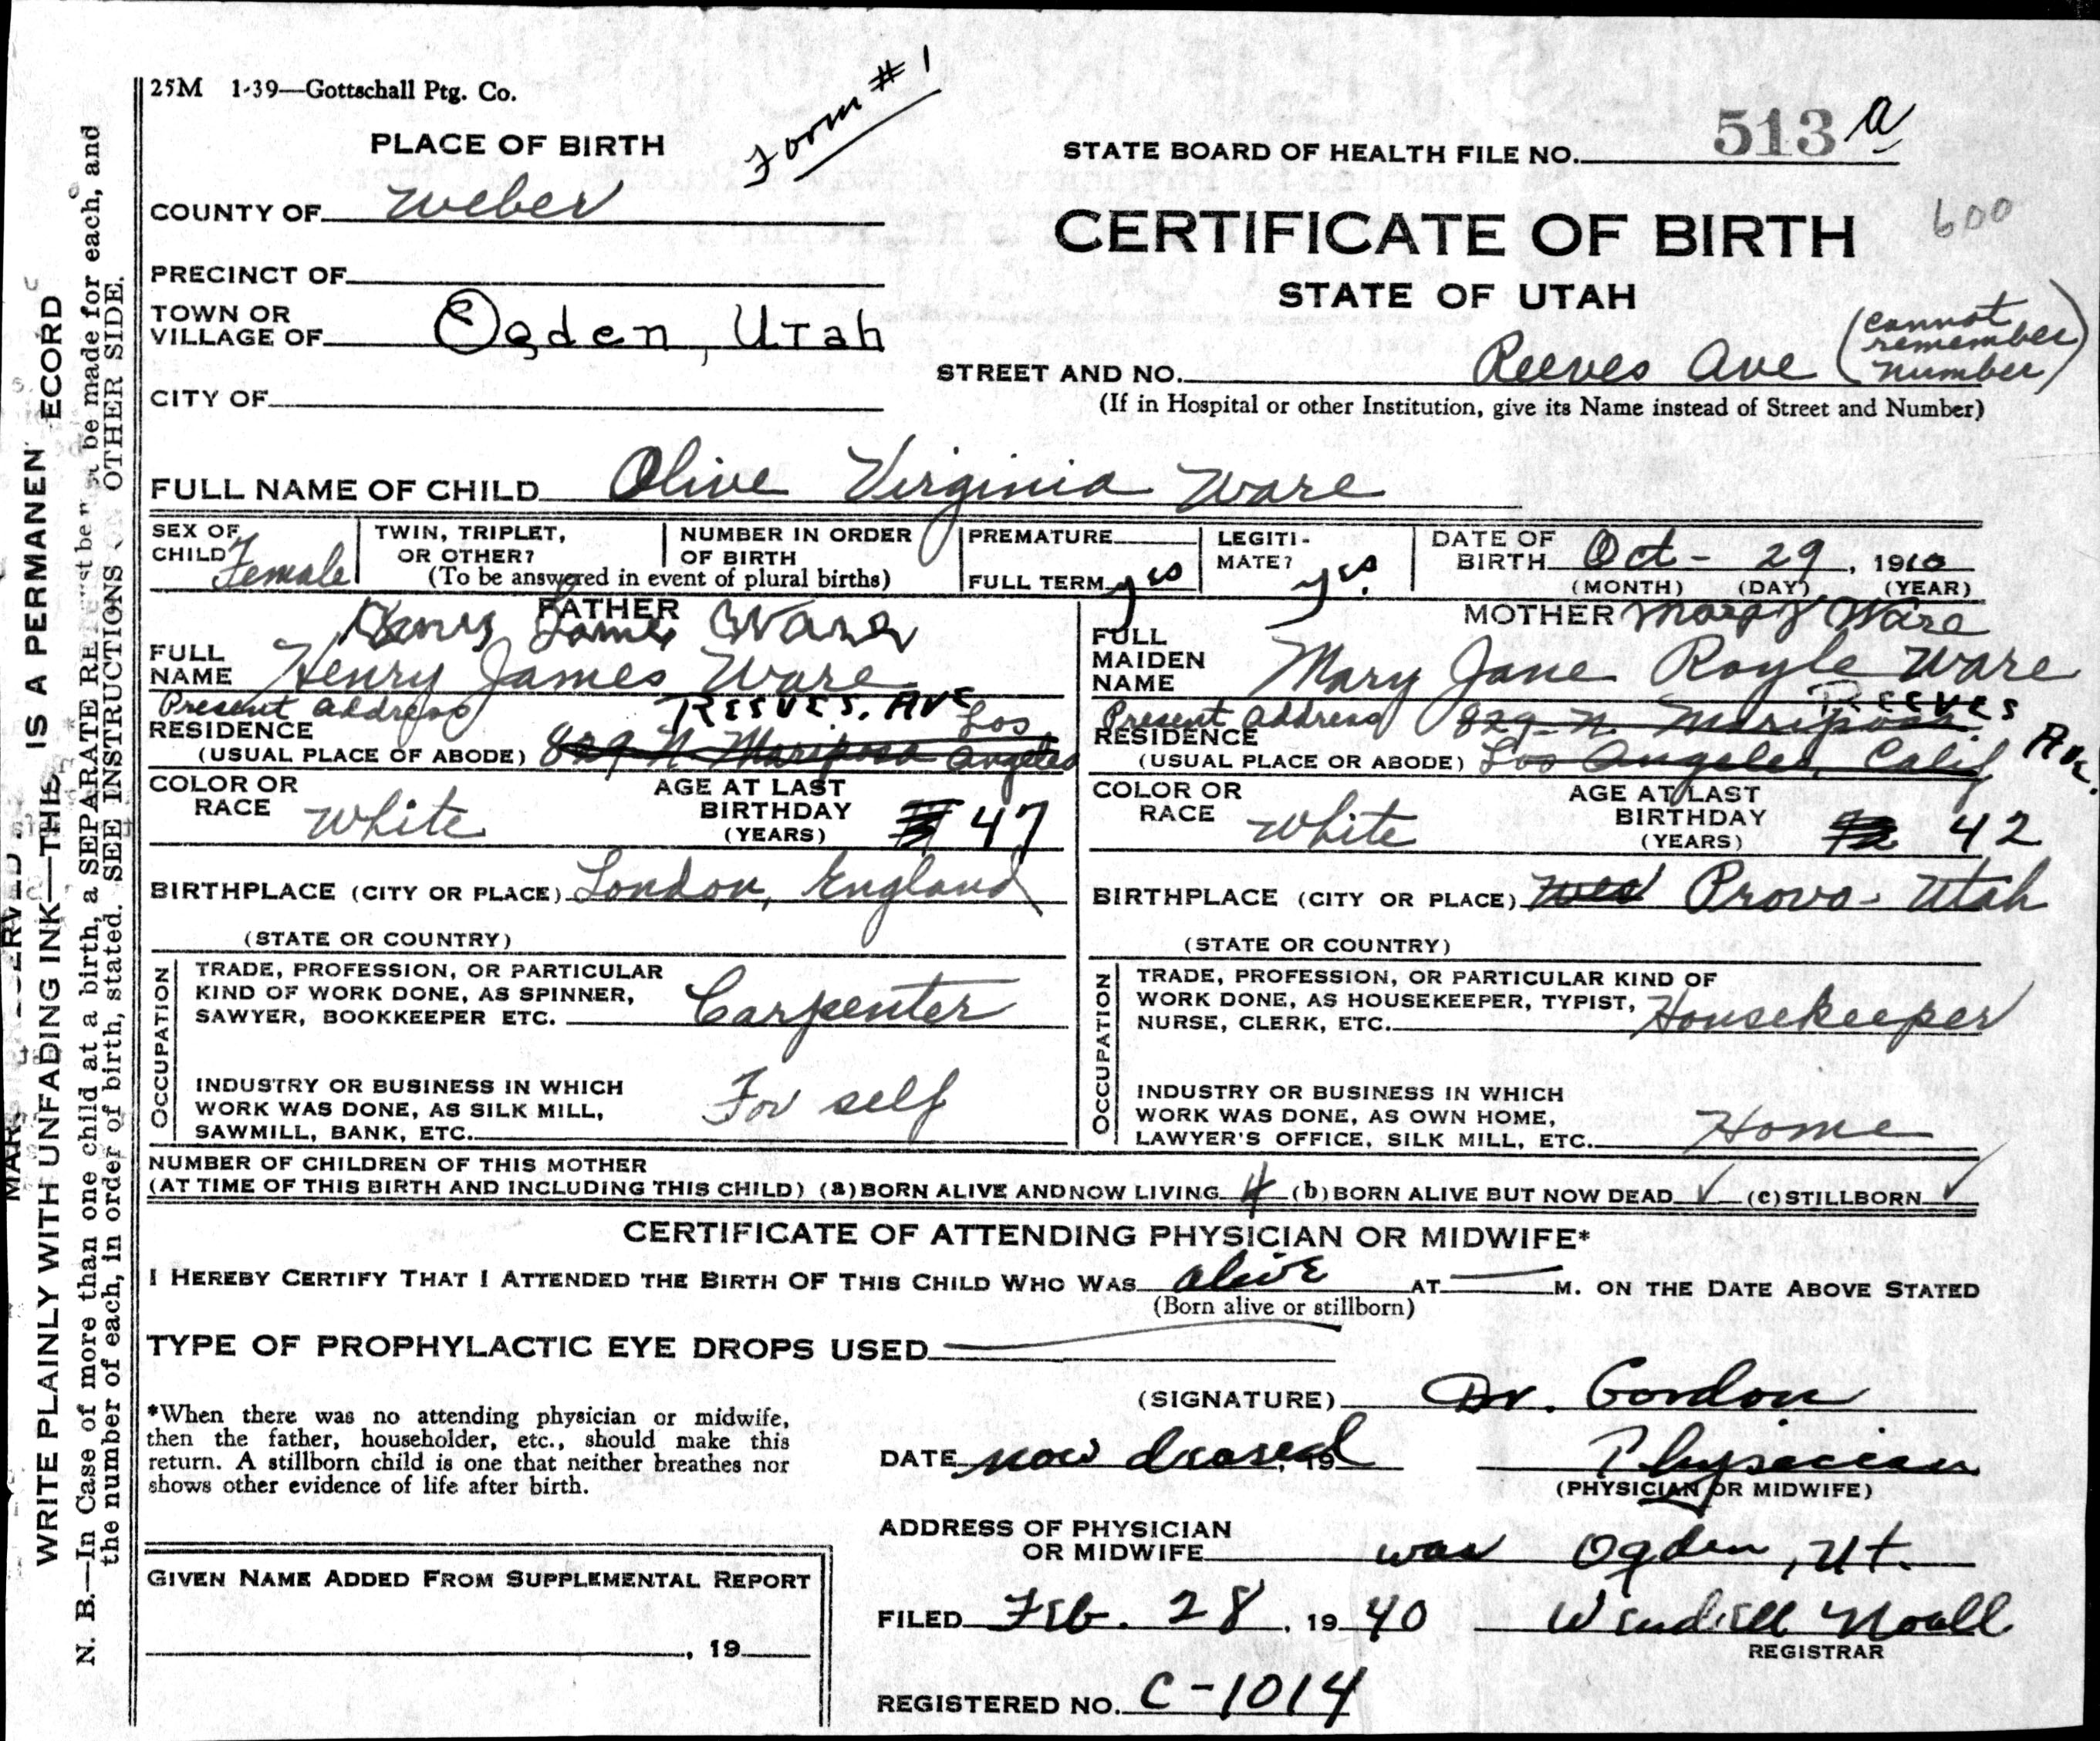 25M 1-39—Gottschall Ptg. Co.
Form # 1
PLACE OF BIRTH
STATE BOARD OF HEALTH FILE NO. 513 a
COUNTY OF Weber
CERTIFICATE OF BIRTH
600
PRECINCT OF
STATE OF UTAH
TOWN OR
VILLAGE OF Ogden, Utah
STREET AND NO. Reeves Ave (cannot remember number)
CITY OF
(If in Hospital or other Institution, give its Name instead of Street and Number)
FULL NAME OF CHILD Olive Virginia Ware
SEX OF
CHILD Female
TWIN, TRIPLET,
OR OTHER?
NUMBER IN ORDER
OF BIRTH
(To be answered in event of plural births)
PREMATURE
FULL TERM yes
LEGITI-
MATE? yes.
DATE OF
BIRTH Oct - 29, 1910
(MONTH) (DAY) (YEAR)
FATHER
James Ware
FULL
NAME Henry James Ware
Present address
REEVES. AVE
RESIDENCE
(USUAL PLACE OF ABODE) 829 N Mariposa Los Angeles
COLOR OR
RACE White
AGE AT LAST
BIRTHDAY
(YEARS) 47
BIRTHPLACE (CITY OR PLACE) London, England
(STATE OR COUNTRY)
OCCUPATION
TRADE, PROFESSION, OR PARTICULAR
KIND OF WORK DONE, AS SPINNER,
SAWYER, BOOKKEEPER ETC. Carpenter
INDUSTRY OR BUSINESS IN WHICH
WORK WAS DONE, AS SILK MILL,
SAWMILL, BANK, ETC. For self
MOTHER Ware
FULL
MAIDEN
NAME Mary Jane Royle Ware
Present Address 829 N. Mariposa. REEVES AVE.
RESIDENCE
(USUAL PLACE OR ABODE) Los Angeles, Calif
COLOR OR
RACE White
AGE AT LAST
BIRTHDAY
(YEARS) 72 42
BIRTHPLACE (CITY OR PLACE) Provo - Utah
(STATE OR COUNTRY)
OCCUPATION
TRADE, PROFESSION, OR PARTICULAR KIND OF
WORK DONE, AS HOUSEKEEPER, TYPIST,
NURSE, CLERK, ETC. Housekeeper
INDUSTRY OR BUSINESS IN WHICH
WORK WAS DONE, AS OWN HOME,
LAWYER'S OFFICE, SILK MILL, ETC. Home
NUMBER OF CHILDREN OF THIS MOTHER
(AT TIME OF THIS BIRTH AND INCLUDING THIS CHILD) (a) BORN ALIVE AND NOW LIVING 4 (b) BORN ALIVE BUT NOW DEAD ✓ (c) STILLBORN ✓
CERTIFICATE OF ATTENDING PHYSICIAN OR MIDWIFE*
I HEREBY CERTIFY THAT I ATTENDED THE BIRTH OF THIS CHILD WHO WAS alive AT — M. ON THE DATE ABOVE STATED
(Born alive or stillborn)
TYPE OF PROPHYLACTIC EYE DROPS USED —
(SIGNATURE) Dr. Gordon
*When there was no attending physician or midwife,
then the father, householder, etc., should make this
return. A stillborn child is one that neither breathes nor
shows other evidence of life after birth.
DATE now deased, 19 Physician
(PHYSICIAN OR MIDWIFE)
ADDRESS OF PHYSICIAN
OR MIDWIFE was Ogden, Ut.
GIVEN NAME ADDED FROM SUPPLEMENTAL REPORT
, 19
FILED Feb. 28, 19 40 Wendell Noall
REGISTRAR
REGISTERED NO. C-1014
WRITE PLAINLY WITH UNFADING INK—THIS IS A PERMANEN ECORD
N. B.—In Case of more than one child at a birth, a SEPARATE RE must be made for each, and
the number of each, in order of birth, stated. SEE INSTRUCTIONS ON OTHER SIDE.